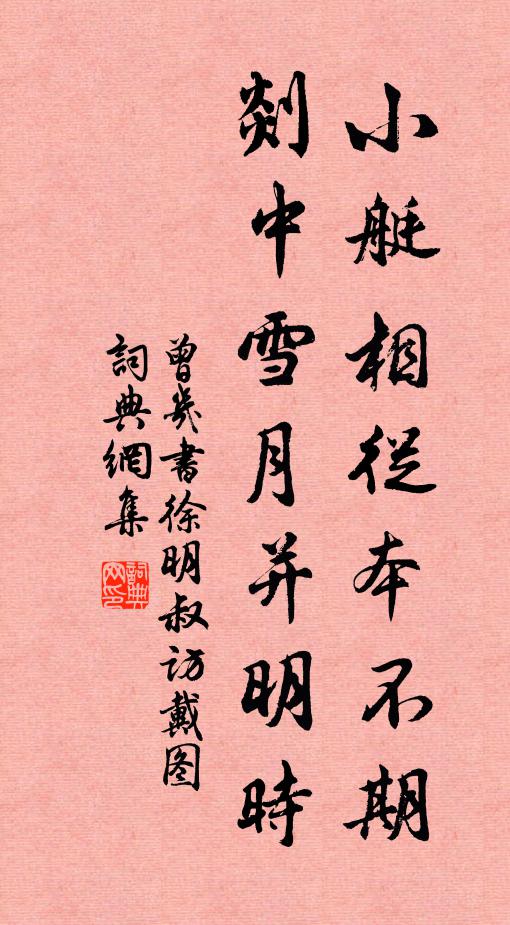 小艇相從本不期
剡中雪月并明時
曾幾書徐明叔访戴图
詞典網集
詞典网印